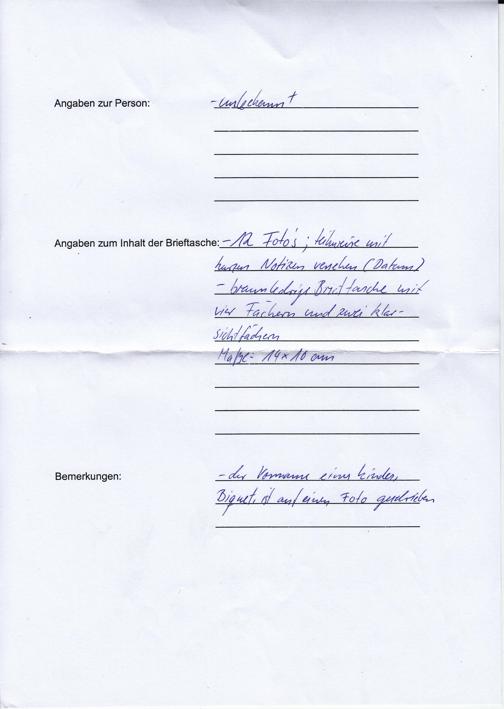 Angaben zur Person: - unbekannt
Angaben zum Inhalt der Brieftasche: - 12 Foto's ; teilweise mit
kurzen Notizen versehen (Datum)
- braunledrige Brieftasche mit
vier Fächern und zwei Klar-
sichtfächern
Maße: 14 x 10 cm
Bemerkungen: - der Vorname eines Kindes,
ist auf einem Foto geschrieben